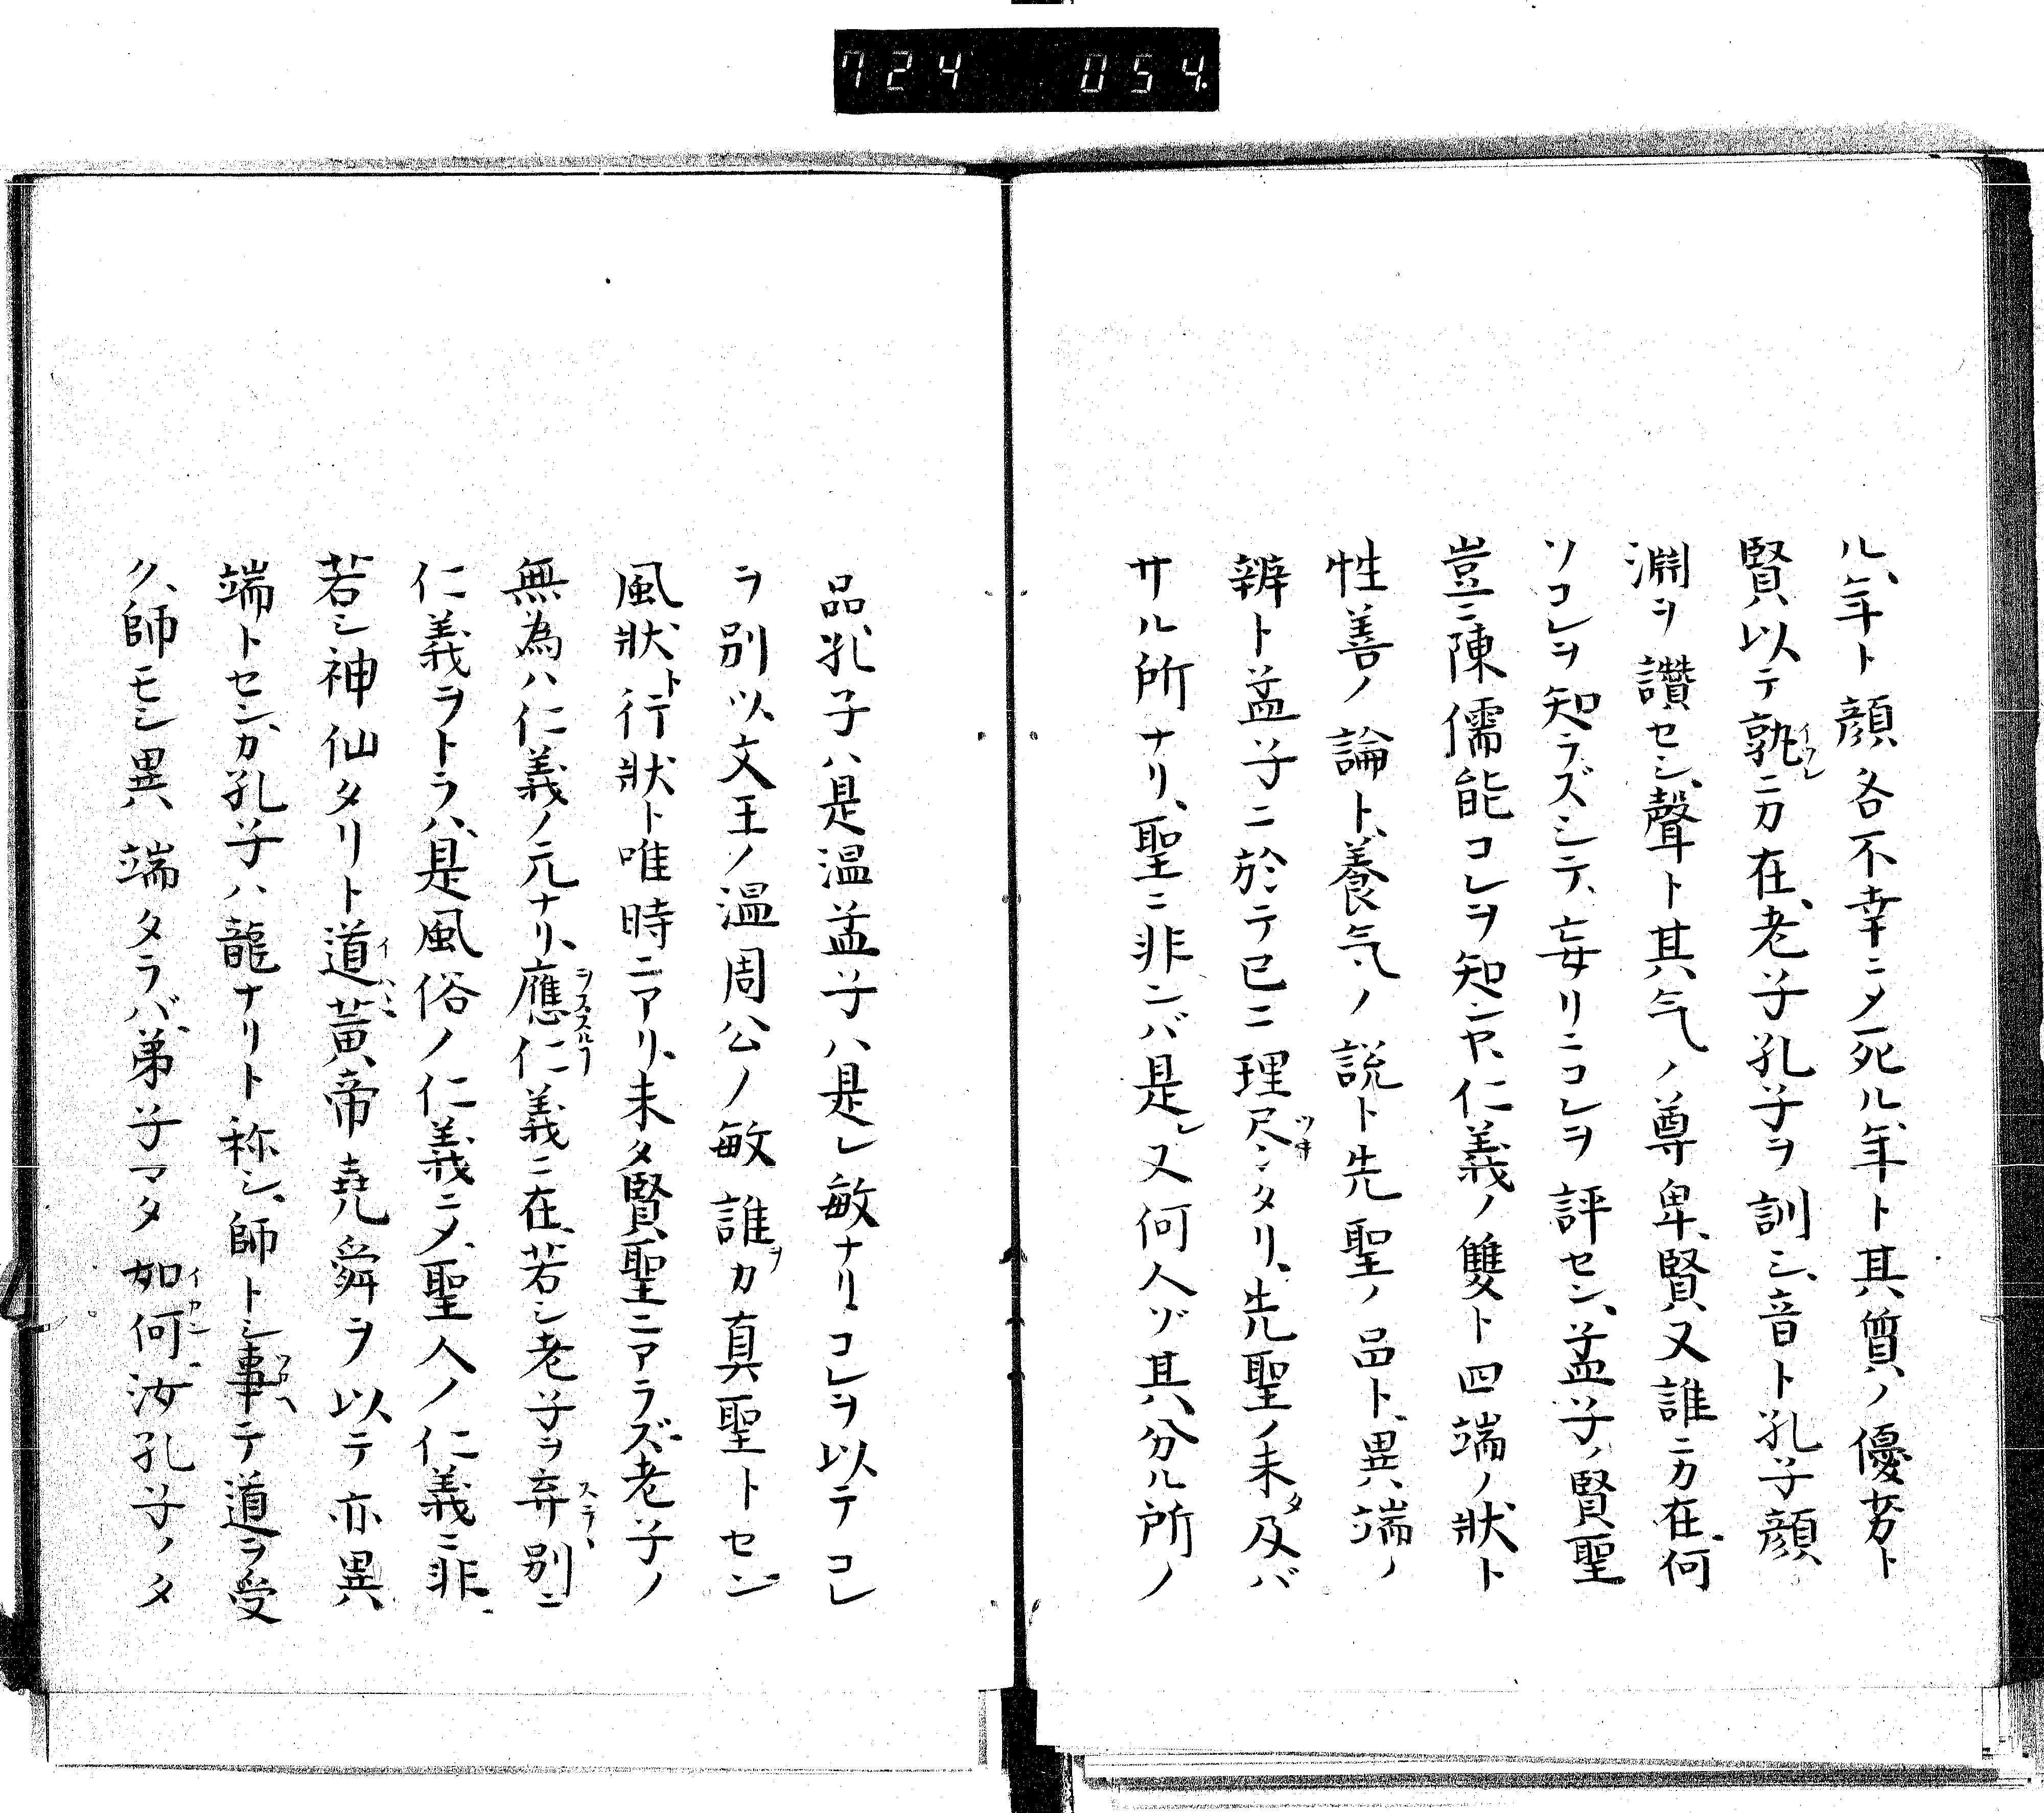 724 054.
ル、年ト顔各不幸ニメ死ル、年ト其質ノ優劣ト
賢以テ孰ニカ在、老子孔子ヲ訓シ、音ト孔子顔
淵ヲ讚セシ、聲ト其气ノ尊卑、賢又誰ニカ在、何
ソコレヲ知ラズシテ、妄リニコレヲ評セン、孟子ノ賢聖
豈ニ陳儒能コレヲ知ンヤ、仁義ノ雙ト四端ノ狀ト
性善ノ論ト、養气ノ説ト先聖ノ品ト、異端ノ
辨ト孟子ニ於テ已ニ理尽シタリ、先聖ノ未タ及バ
サル所ナリ、聖ニ非ンバ是レ又何人ゾ其分ル所ノ
品、孔子ハ是温孟子ハ是レ敏ナリ、コレヲ以テコレ
ヲ別以文王ノ温周公ノ敏誰ヲカ真聖トセン
風狀ト行狀ト唯時ニアリ、未タ賢聖ニアラズ、老子ノ
無為ハ仁義ノ元ナリ、應仁義ニ在、若シ老子ヲ弃別ニ
仁義ヲトラハ、是風俗ノ仁義ニメ、聖人ノ仁義ニ非、
若シ神仙タリト道黄帝堯舜ヲ以テ亦異
端トセンカ、孔子ハ龍ナリト称シ、師トシ事テ道ヲ受
ク、師モシ異端タラバ、弟子マタ如何、汝孔子ノタ